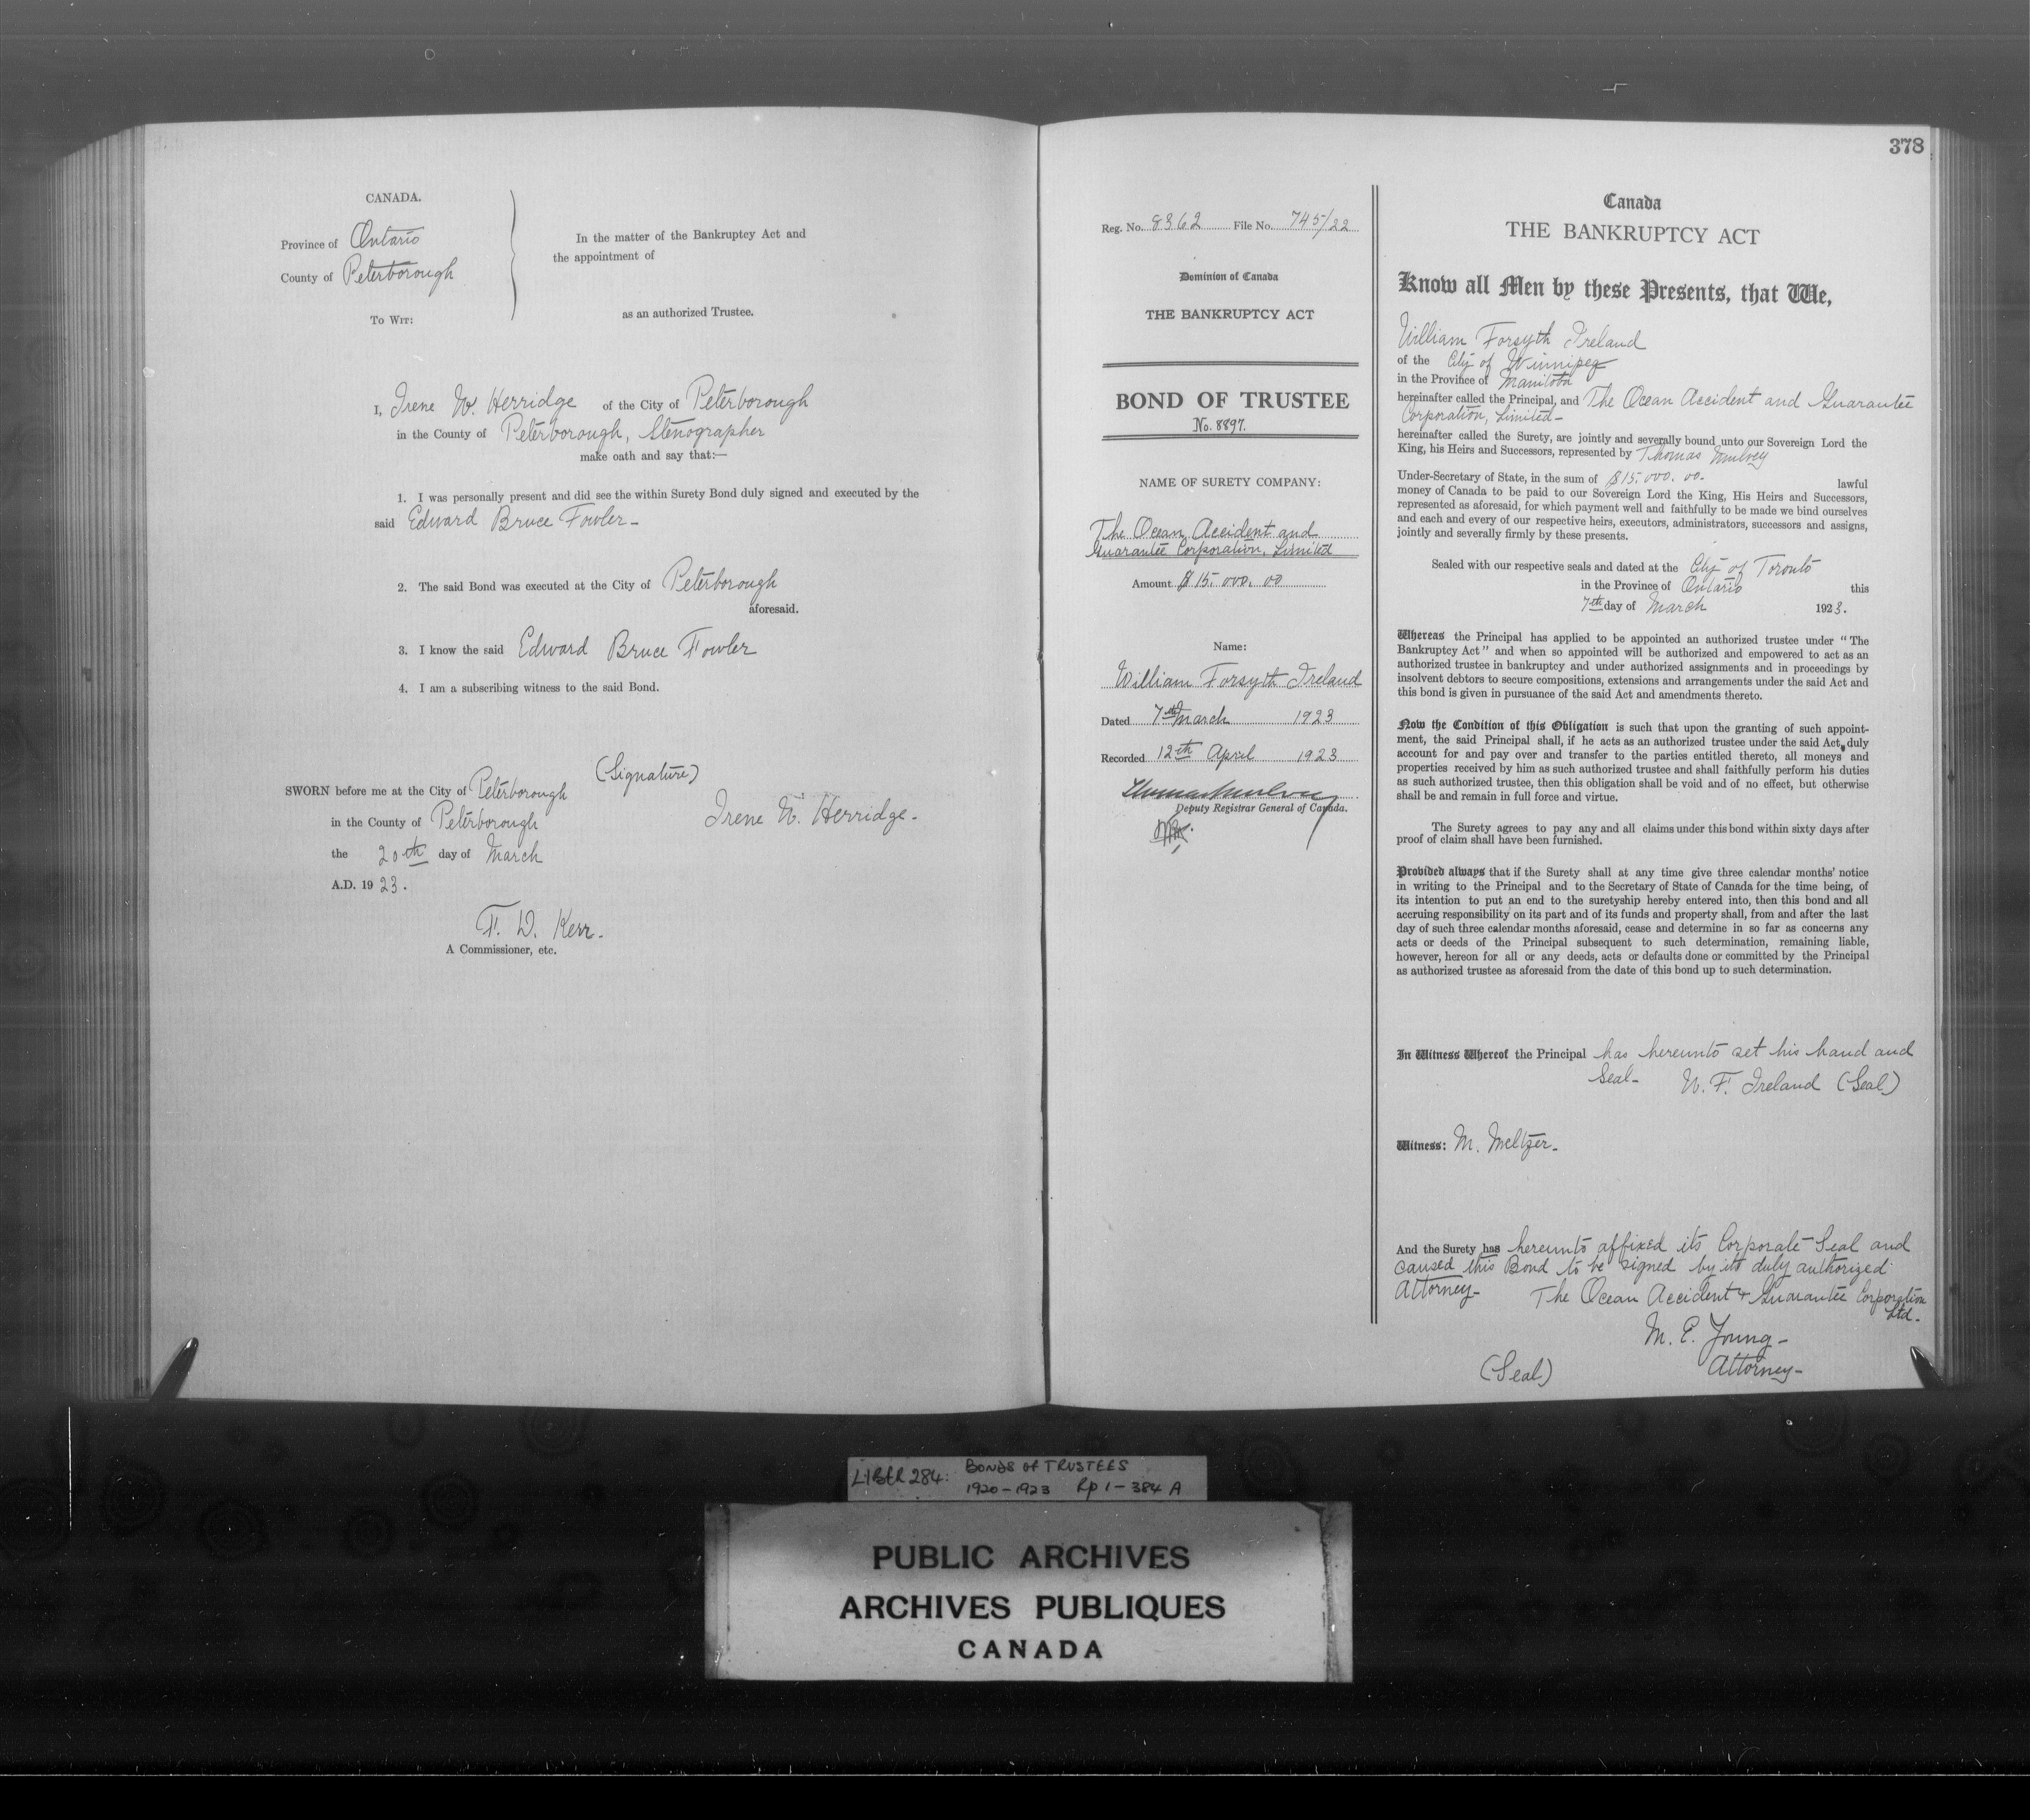 CANADA.
Province of Ontario
County of Peterborough
To Wit:
In the matter of the Bankruptcy Act and
the appointment of
as an authorized Trustee.
I, Irene W. Herridge of the City of Peterborough
in the County of Peterborough, Stenographer
make oath and say that:—
1. I was personally present and did see the within Surety Bond duly signed and executed by the
said Edward Bruce Fowler-
2. The said Bond was executed at the City of Peterborough
aforesaid.
3. I know the said Edward Bruce Fowler
4. I am a subscribing witness to the said Bond.
(Signature)
SWORN before me at the City of Peterborough
in the County of Peterborough
Irene W. Herridge-
the 20th day of March
A.D. 1923.
F. D. Kerr-
A Commissioner, etc.
378
Reg. No. 8362 File No. 745/22
Dominion of Canada
THE BANKRUPTCY ACT
BOND OF TRUSTEE
No. 8897.
NAME OF SURETY COMPANY:
The Ocean Accident and
Guarantee Corporation, Limited
Amount $15.000.00
Name:
William Forsyth Ireland
Dated 7th March 1923
Recorded 12th April 1923
Thomas Mulvey
Deputy Registrar General of Canada.
Canada
THE BANKRUPTCY ACT
Know all Men by these Presents, that We,
William Forsyth Ireland
of the City of Winnipeg
in the Province of Manitoba
hereinafter called the Principal, and The Ocean Accident and Guarantee
Corporation, Limited-
hereinafter called the Surety, are jointly and severally bound unto our Sovereign Lord the
King, his Heirs and Successors, represented by Thomas Mulvey
Under-Secretary of State, in the sum of $15.000.00. lawful
money of Canada to be paid to our Sovereign Lord the King, His Heirs and Successors,
represented as aforesaid, for which payment well and faithfully to be made we bind ourselves
and each and every of our respective heirs, executors, administrators, successors and assigns,
jointly and severally firmly by these presents.
Sealed with our respective seals and dated at the City of Toronto
in the Province of Ontario this
7th day of March 1923.
Whereas the Principal has applied to be appointed an authorized trustee under "The
Bankruptcy Act" and when so appointed will be authorized and empowered to act as an
authorized trustee in bankruptcy and under authorized assignments and in proceedings by
insolvent debtors to secure compositions, extensions and arrangements under the said Act and
this bond is given in pursuance of the said Act and amendments thereto.
Now the Condition of this Obligation is such that upon the granting of such appoint-
ment, the said Principal shall, if he acts as an authorized trustee under the said Act, duly
account for and pay over and transfer to the parties entitled thereto, all moneys and
properties received by him as such authorized trustee and shall faithfully perform his duties
as such authorized trustee, then this obligation shall be void and of no effect, but otherwise
shall be and remain in full force and virtue.
The Surety agrees to pay any and all claims under this bond within sixty days after
proof of claim shall have been furnished.
Provided always that if the Surety shall at any time give three calendar months' notice
in writing to the Principal and to the Secretary of State of Canada for the time being, of
its intention to put an end to the suretyship hereby entered into, then this bond and all
accruing responsibility on its part and of its funds and property shall, from and after the last
day of such three calendar months aforesaid, cease and determine in so far as concerns any
acts or deeds of the Principal subsequent to such determination, remaining liable,
however, hereon for all or any deeds, acts or defaults done or committed by the Principal
as authorized trustee as aforesaid from the date of this bond up to such determination.
In Witness Whereof the Principal has hereunto set his hand and
Seal- W. F. Ireland (Seal)
Witness: M. Meltzer-
And the Surety has hereunto affixed its Corporate Seal and
caused this Bond to be signed by its duly authorized
Attorney- The Ocean Accident & Guarantee Corporation
Ltd.
M. E. Young-
(Seal) Attorney-
LIBER 284: BONDS OF TRUSTEES
1920-1923 Rp 1-384 A
PUBLIC ARCHIVES
ARCHIVES PUBLIQUES
CANADA